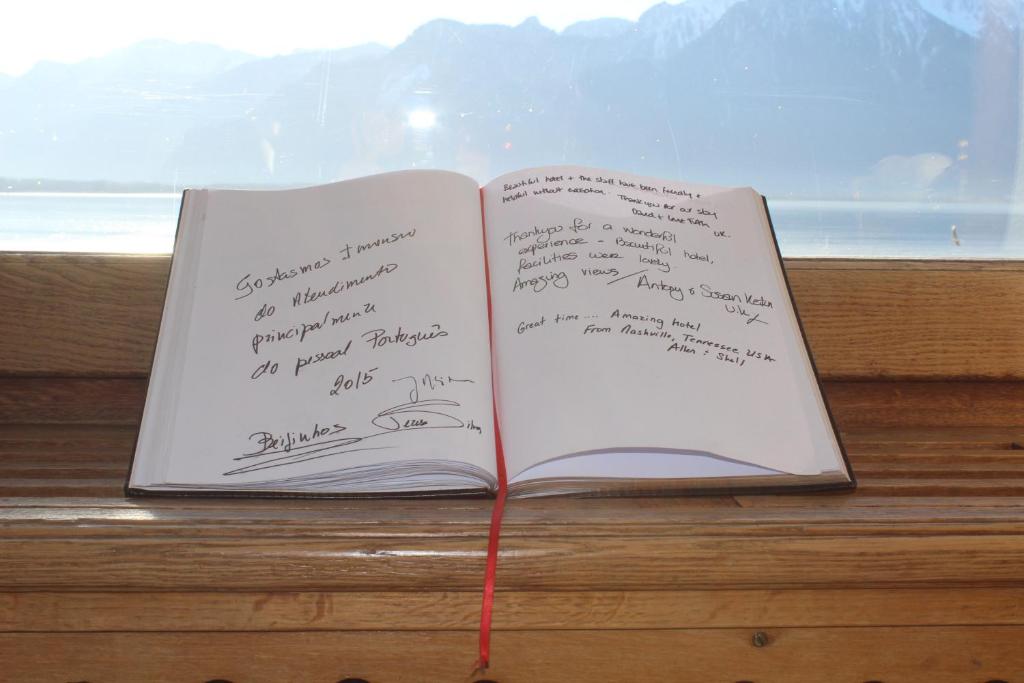 Gostasmos Imenso
do Atendimento
principalmente
do pessoal Português
2015
Beijinhos
Beautiful hotel + the staff have been friendly +
helpful without exception. Thank you for our stay
David + UK.
Thankyou for a wonderful
experience - Beautiful hotel,
facilities were lovely.
Amazing views / Antony & Susan
U.K
Great time .... Amazing hotel
From Nashville, Tennessee USA
Allen & Shell